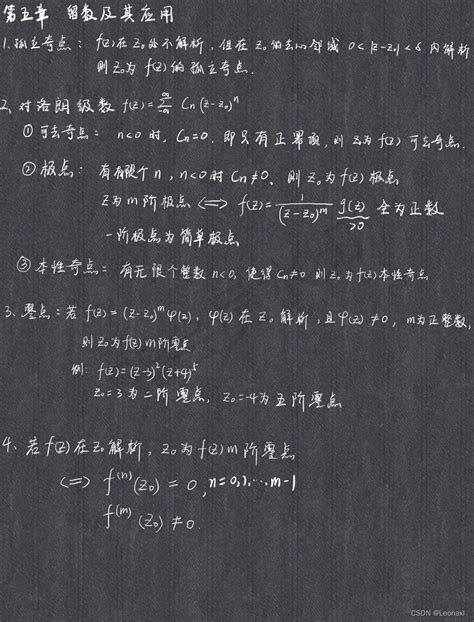 第五章 留数及其应用
1. 孤立奇点: f(z)在 z₀ 处不解析, 但在 z₀ 的去心邻域 0<|z-z₀|<δ 内解析
则 z₀为 f(z) 的孤立奇点.
2、对洛朗级数 f(z)=∑ Cn (z-z₀)ⁿ
① 可去奇点: n<0 时, Cn=0. 即只有正幂项, 则 z₀为 f(z) 可去奇点.
② 极点: 有有限个 n, n<0 时 Cn≠0. 则 z₀为 f(z) 极点
z为 m 阶极点 <=> f(z)= 1/(z-z₀)ᵐ g(z) 全为正数
>0
一阶极点为简单极点
③ 本性奇点: 有无限个整数 n<0, 使得 Cn≠0 则 z₀为 f(z) 本性奇点
3、零点: 若 f(z)=(z-z₀)ᵐ φ(z), φ(z) 在 z₀ 解析, 且 φ(z) ≠0, m为正整数,
则 z₀为 f(z) m阶零点
例: f(z)=(z-3)²(z+4)⁵
z₀=3 为二阶零点, z₀=-4为五阶零点
4、若 f(z) 在 z₀ 解析, z₀为 f(z) m 阶零点
<=> f⁽ⁿ⁾(z₀) = 0, n=0,1,...m-1
f⁽ᵐ⁾(z₀) ≠0.
CSDN @Leonaxl